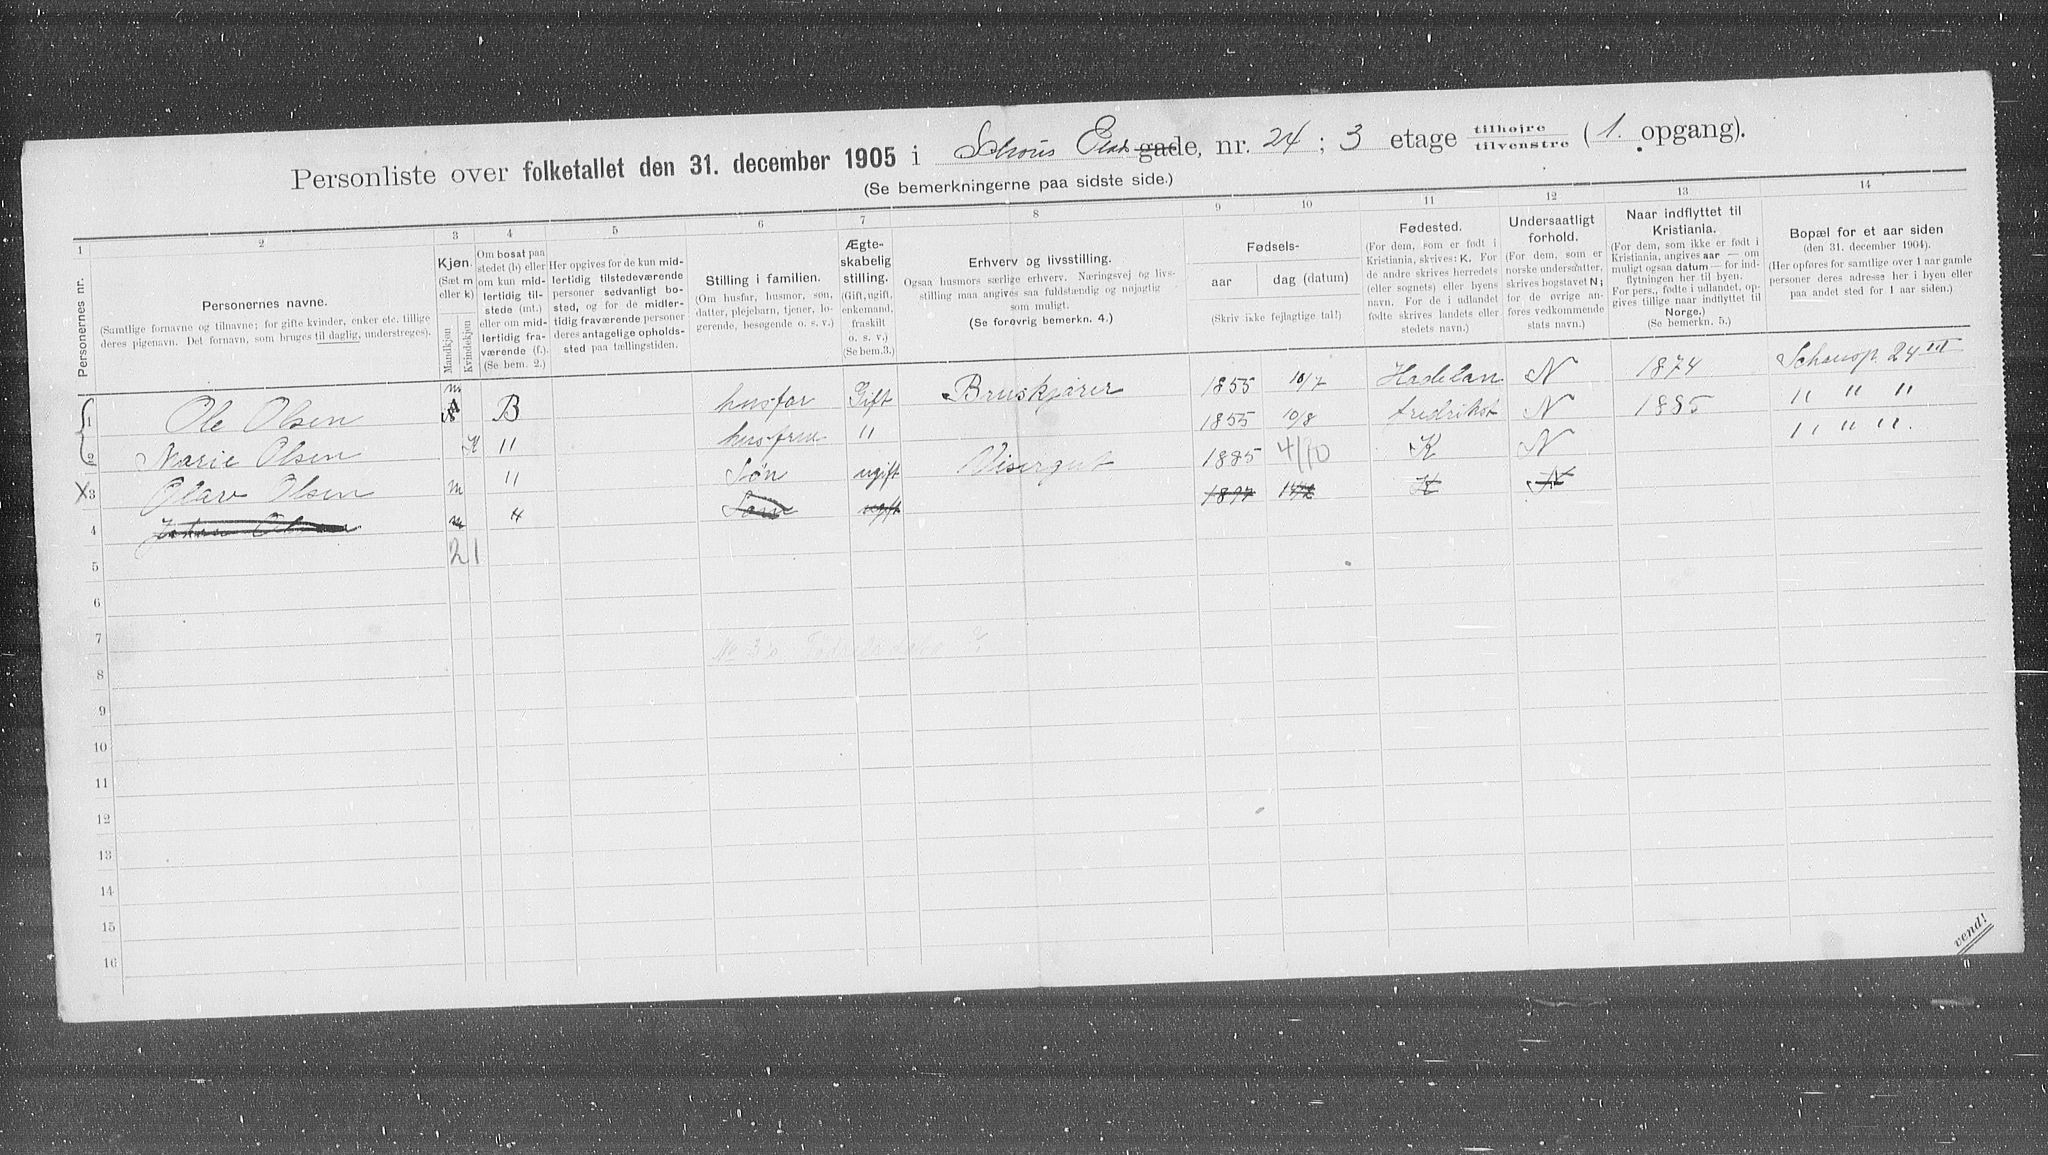 Personliste over folketallet den 31. december 1905 i Schous Plads gade, nr. 24 ; 3 etage tilhøjre tilvenstre (1. opgang).
(Se bemerkningerne paa sidste side.)
1 2 3 4 5 6 7 8 9 10 11 12 13 14
Personernes nr.
Personernes navne.
(Samtlige fornavne og tilnavne; for gifte kvinder, enker etc. tillige deres pigenavn. Det fornavn, som bruges til daglig, understreges).
Kjøn.
(Sæt m eller k)
Mandkjøn
Kvindekjøn
Om bosat paa stedet (b) eller om kun midlertidig tilstede (mt.) eller om midlertidig fraværende (f.)
(Se bem. 2.)
Her opgives for de kun midlertidig tilstedeværende personer sedvanligt bosted, og for de midlertidig fraværende personer deres antagelige opholdssted paa tællingstiden.
Stilling i familien.
(Om husfar, husmor, søn, datter, plejebarn, tjener, logerende, besøgende o. s. v.)
Ægteskabelig stilling.
(Gift, ugift, enkemand, fraskilt o. s. v.)
(Se bem.3.)
Erhverv og livsstilling.
Ogsaa husmors særlige erhverv. Næringsvej og livsstilling maa angives saa fuldstændig og nøjagtig som muligt.
(Se forøvrig bemerkn. 4.)
Fødsels-
aar
dag (datum)
(Skriv ikke fejlagtige tal!)
Fødested.
(For dem, som er født i Kristiania, skrives: K. For de andre skrives herredets (eller sognets) eller byens navn. For de i udlandet fødte skrives landets eller stedets navn.)
Undersaatligt forhold.
(For dem, som er norske undersaatter, skrives bogstavet N; for de øvrige anføres vedkommende stats navn.)
Naar indflyttet til Kristiania.
(For dem, som ikke er født i Kristiania, angives aar — om muligt ogsaa datum — for indflytningen her til byen. For pers., født i udlandet, opgives tillige naar indflyttet til Norge.)
(Se bemerkn. 5.)
Bopæl for et aar siden
(den 31. december 1904).
(Her opføres for samtlige over 1 aar gamle personer deres adresse her i byen eller paa andet sted for 1 aar siden.)
1 Ole Olsen m B husfar Gift Bruskjører 1855 10/7 Hadelan N 1874 Schousp 24 III
2 Marie Olsen K " husfrue " 1855 10/8 fredrikst N 1885 " " "
X 3 Olav Olsen m " Søn ugift Visergut 1885 4/10 K N " " "
4 Johan Olsen m " Søn ugift 1897 K N
2 1
5
6
7
8
9
10
11
12
13
14
15
16
vend!